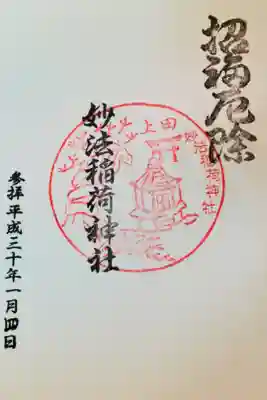 招福厄除
妙法稲荷神社
上田
妙法稲荷神社
参拝平成三十年一月四日